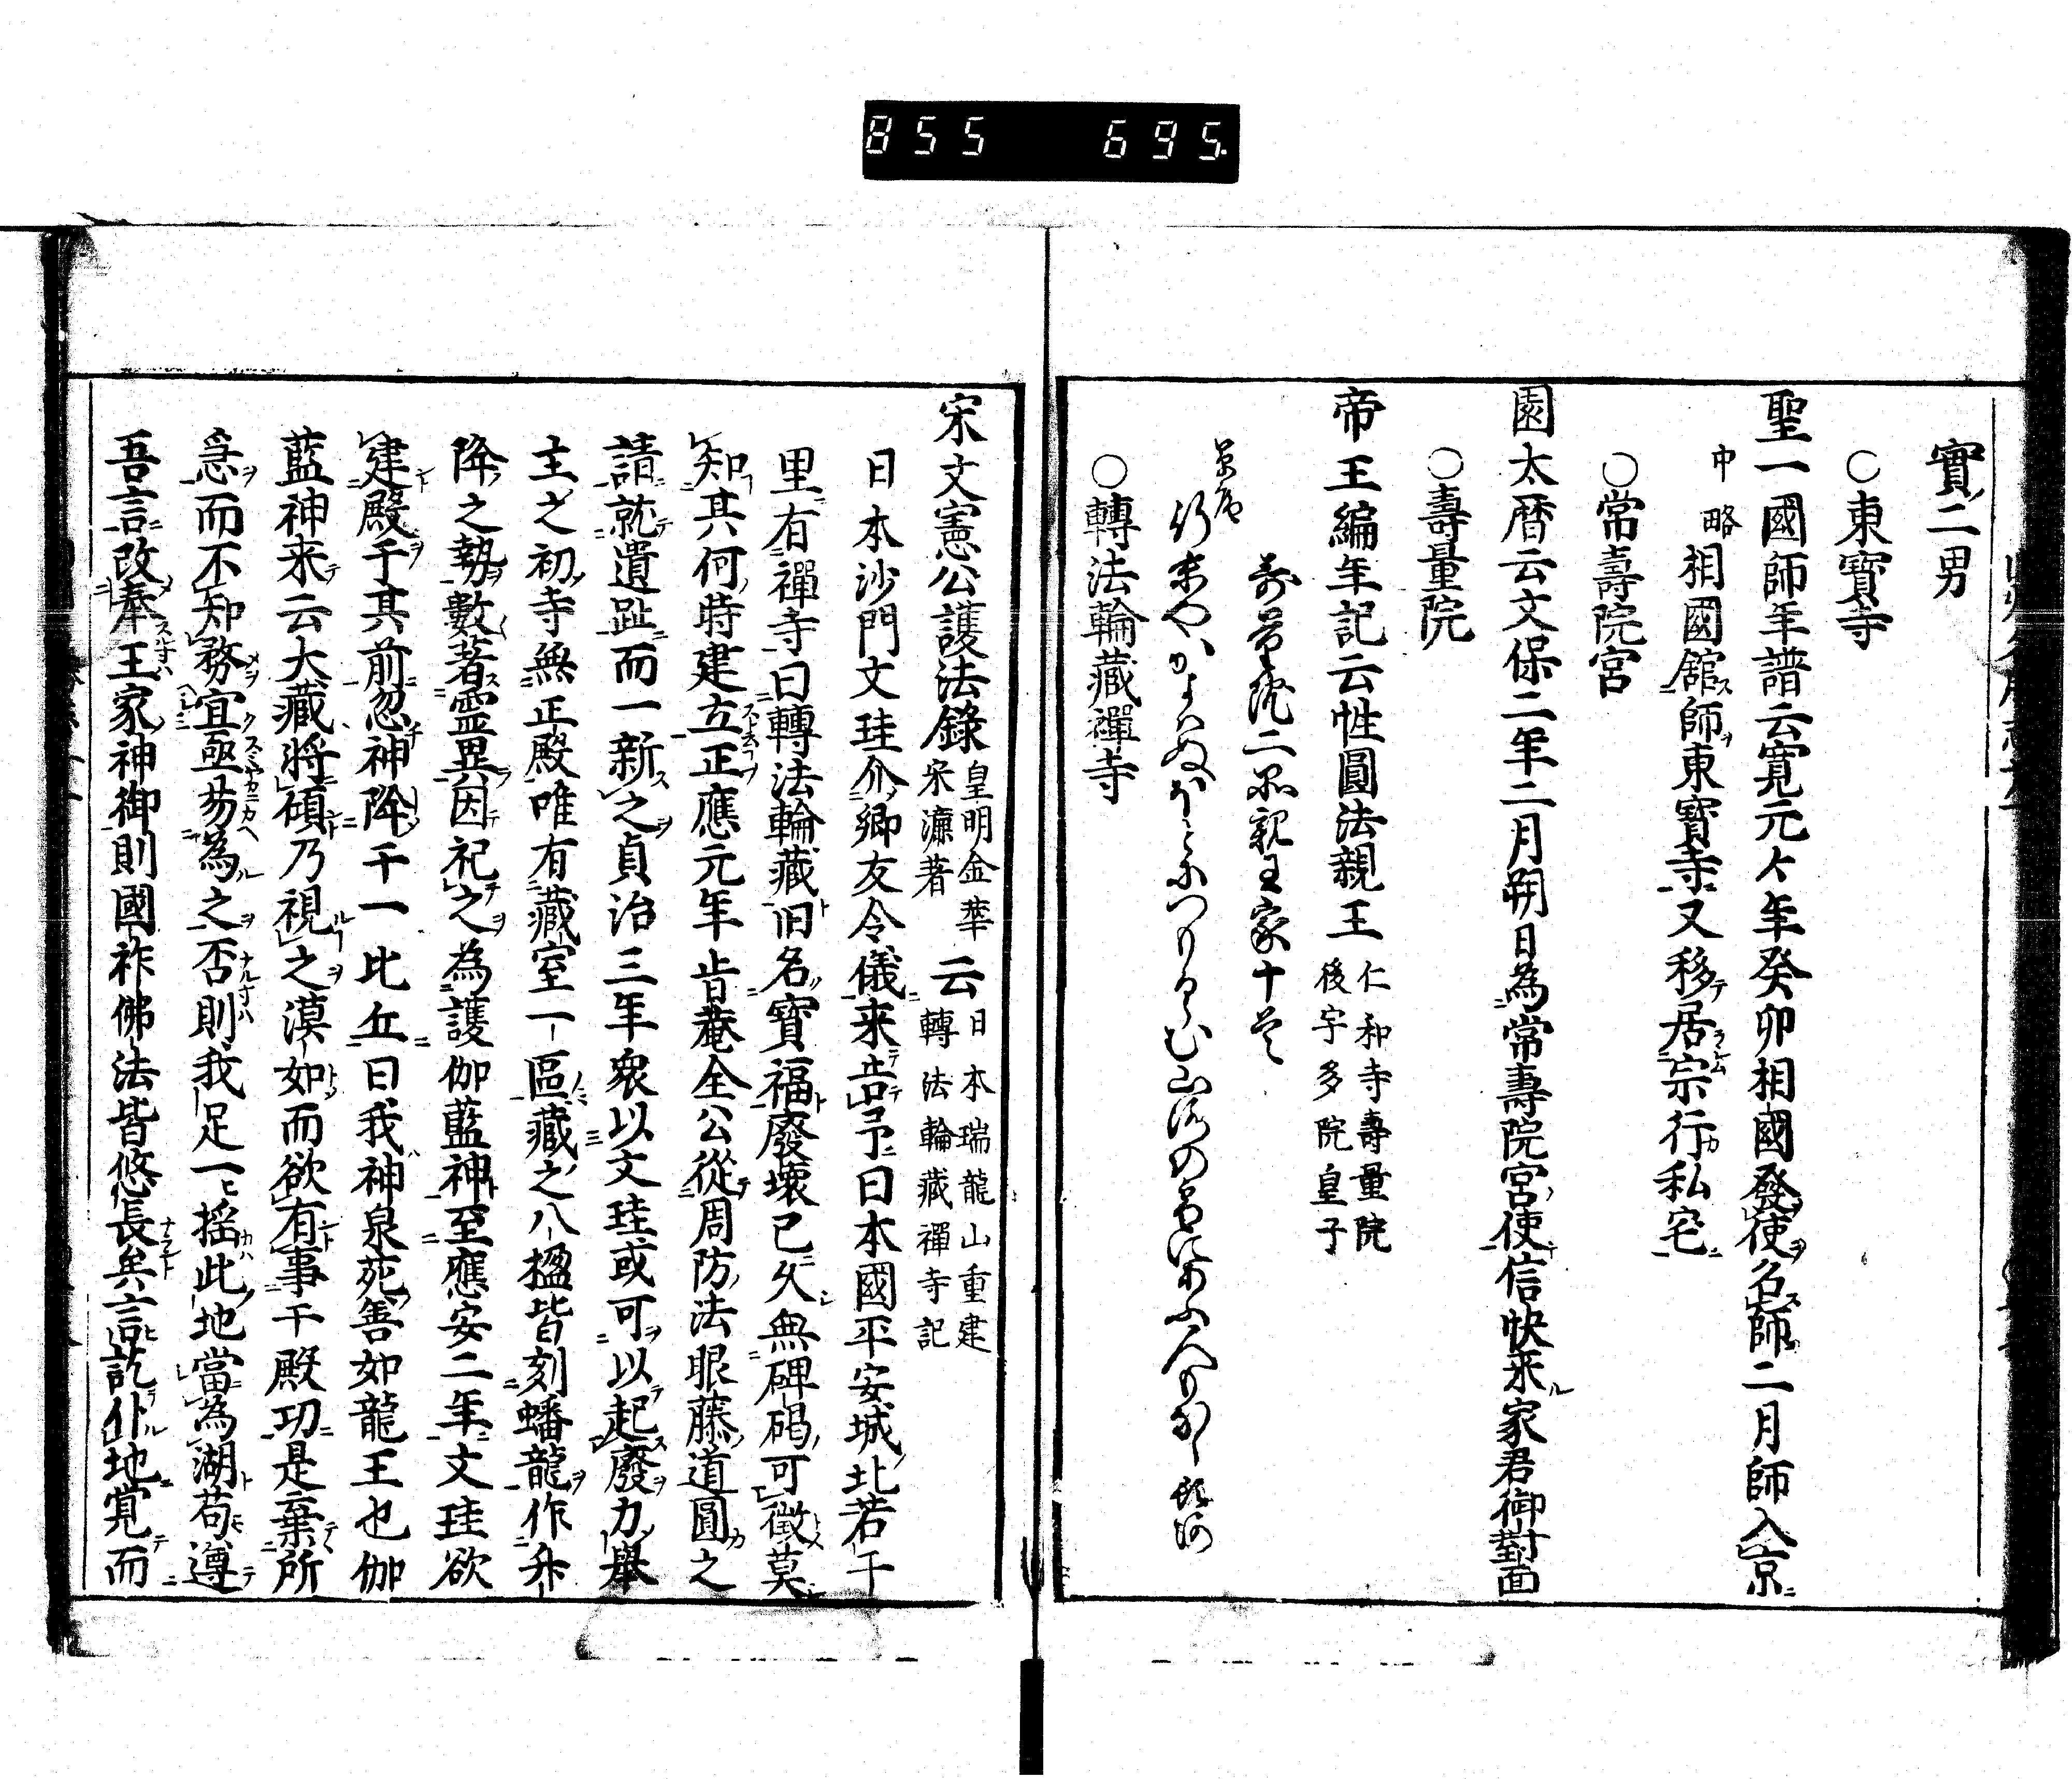 855 695
實二男
○東寶寺
聖一國師年譜云寛元々年癸卯相國發使名師二月師入京
中略相國舘師東寶寺又移居宗行私宅
○常壽院宮
園太暦云文保二年二月朔日為常壽院宮使信快来家君御對面
○壽量院
帝王編年記云性圓法親王仁和寺壽量院
後宇多院皇子
壽量院二品親王家十首
○轉法輪藏禪寺
宋文憲公護法錄皇明金華
宋濂著云日本瑞龍山重建
轉法輪藏禪寺記
日本沙門文珪介卿友令儀来告予曰本國平安城北若干
里有禪寺曰轉法輪藏旧名寶福廢壊已久無碑碣可徴莫
知其何時建立正應元年肯菴全公從周防法眼藤道圓之
請就遺趾而一新之貞治三年衆以文珪或可以起廢力舉
主之初寺無正殿唯有藏室一區藏之八楹皆刻蟠龍作升
降之勢數著霊異因祀之為護伽藍神至應安二年文珪欲
建殿于其前忽神降于一比丘曰我神泉苑善如龍王也伽
藍神来云大藏將碩乃視之漠如而欲有事于殿功是棄所
急而不知務宜亟易為之否則我足一揺此地當為湖苟遵
吾言改奉王家神御則國祚佛法皆悠長矣言訖仆地覚而